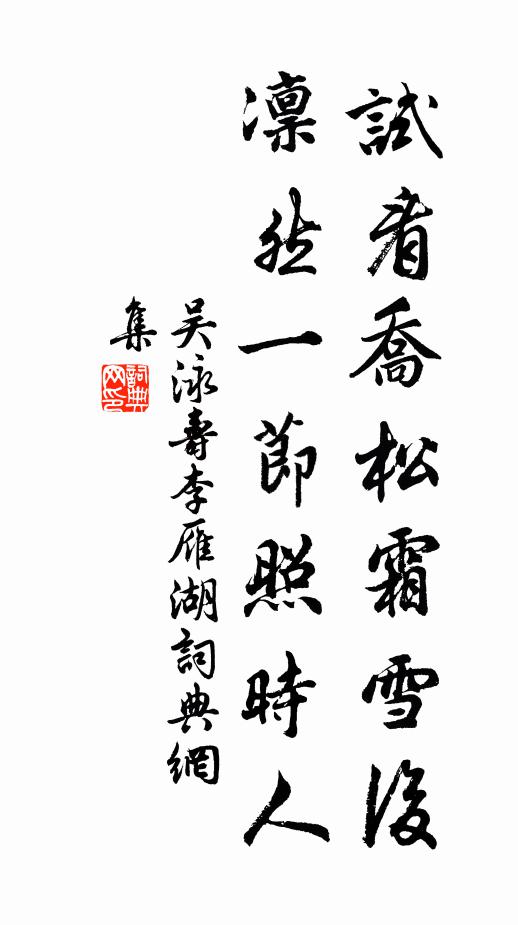 試看喬松霜雪後
凛然一節照時人
吴泳壽李雁湖詞典網
集
詞典网印